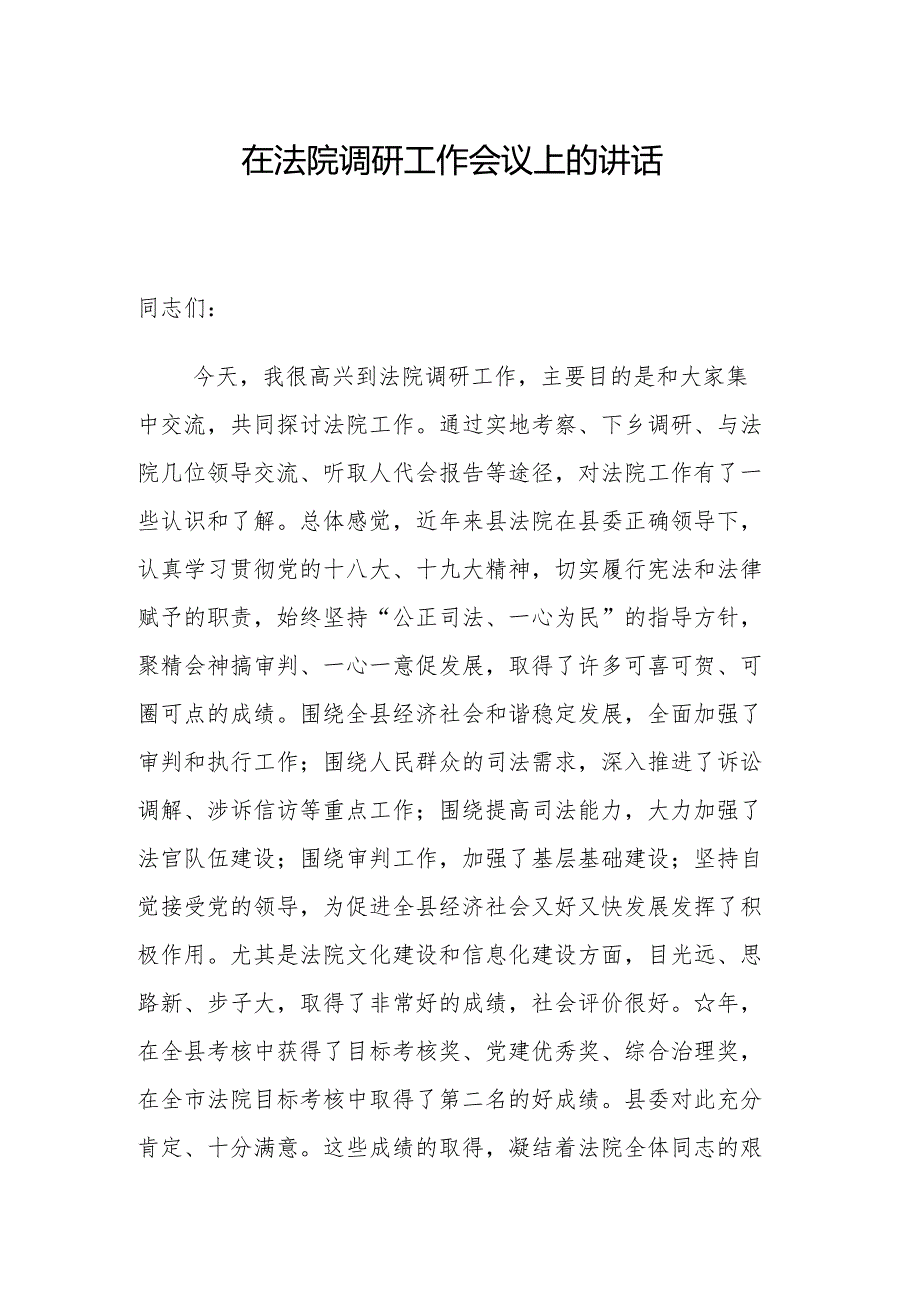 在法院调研工作会议上的讲话
同志们：
今天，我很高兴到法院调研工作，主要目的是和大家集
中交流，共同探讨法院工作。通过实地考察、下乡调研、与法
院几位领导交流、听取人代会报告等途径，对法院工作有了一
些认识和了解。总体感觉，近年来县法院在县委正确领导下，
认真学习贯彻党的十八大、十九大精神，切实履行宪法和法律
赋予的职责，始终坚持“公正司法、一心为民”的指导方针，
聚精会神搞审判、一心一意促发展，取得了许多可喜可贺、可
圈可点的成绩。围绕全县经济社会和谐稳定发展，全面加强了
审判和执行工作；围绕人民群众的司法需求，深入推进了诉讼
调解、涉诉信访等重点工作；围绕提高司法能力，大力加强了
法官队伍建设；围绕审判工作，加强了基层基础建设；坚持自
觉接受党的领导，为促进全县经济社会又好又快发展发挥了积
极作用。尤其是法院文化建设和信息化建设方面，目光远、思
路新、步子大，取得了非常好的成绩，社会评价很好。☆年，
在全县考核中获得了目标考核奖、党建优秀奖、综合治理奖，
在全市法院目标考核中取得了第二名的好成绩。县委对此充分
肯定、十分满意。这些成绩的取得，凝结着法院全体同志的艰